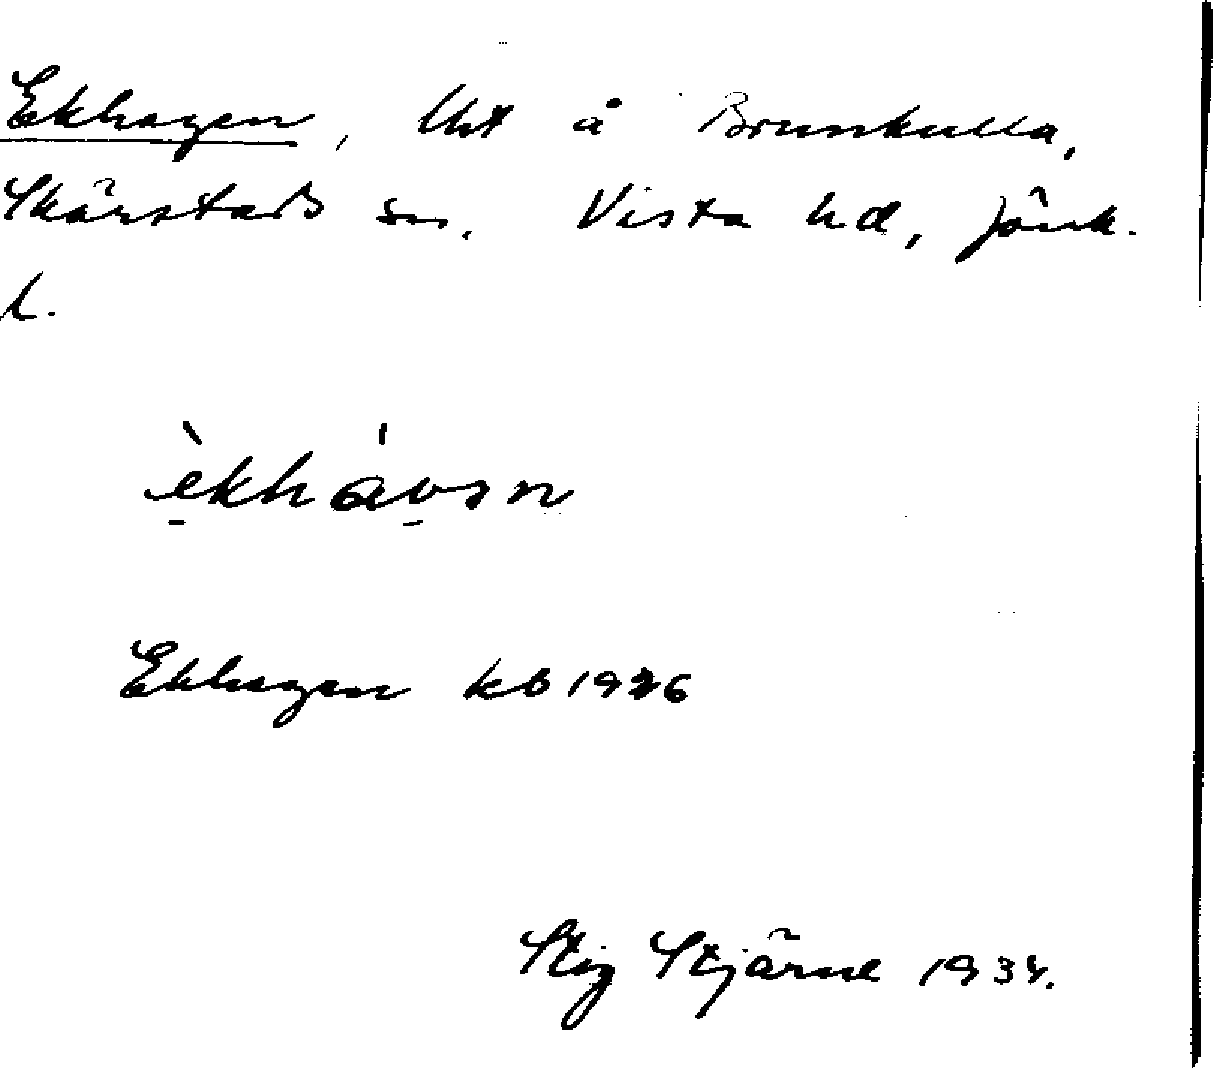 Ekhagen, lht å Brunkulla,
Skärstads sn. Vista hd, Jönk.
l.
Ekhagen kb 1926
Stig Stjärne 1934.